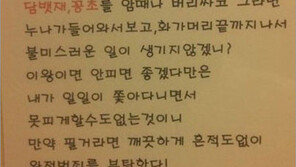 담뱃재,꽁초를 암때나 버리싸코 그라면
누나가들어와서보고,화가머리끝까지나서
불미스러운 일이 생기지않겠니?
이왕이면 안피면 좋겠다만은
내가 일일이 쫓아다니면서
못피게할수도없는것이니
만약 필거라면 깨끗하게 흔적도없이
완전범죄를 부탁한다!